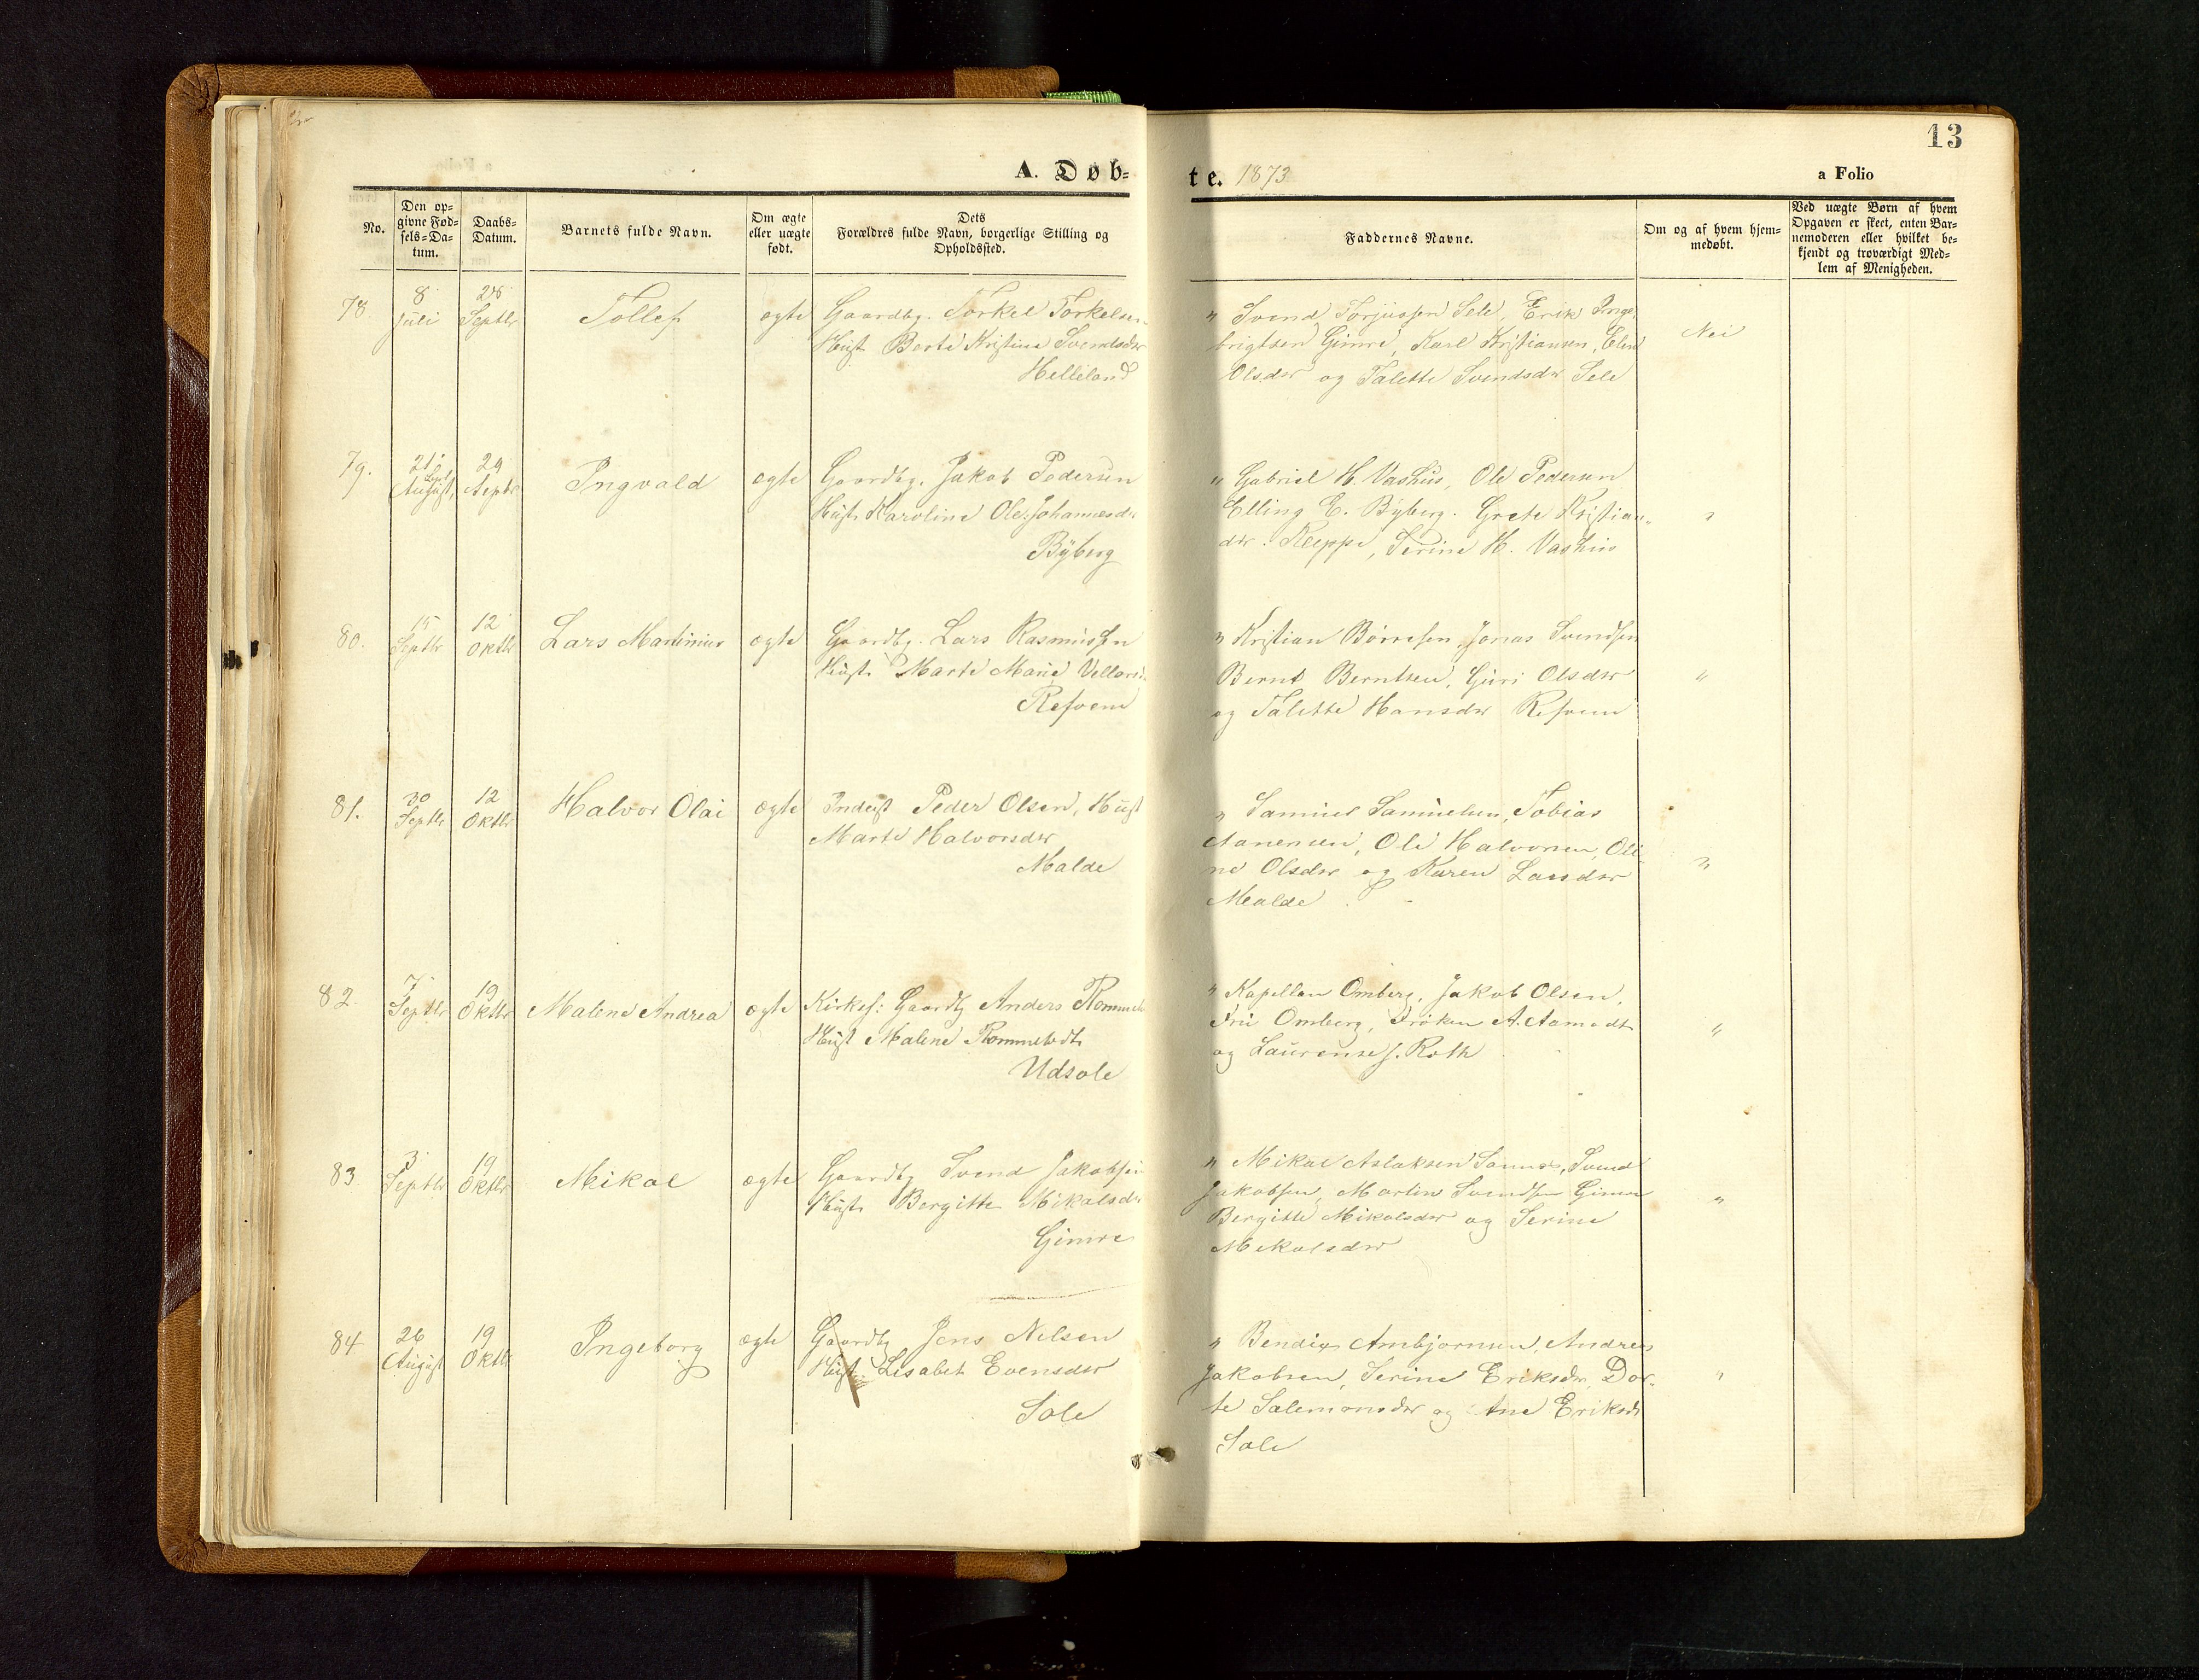 13
A. Døb-
te. 1873
a Folio
No.
Den op-
givne Fød-
sels-Da-
tum.
Daabs-
Datum.
Barnets fulde Navn.
Om ægte
eller uægte
født.
Dets
Forældres fulde Navn, borgerlige Stilling og
Opholdssted.
Faddernes Navne.
Om og af hvem hjem-
medøbt.
Ved uægte Børn af hvem
Opgaven er skeet, enten Bar-
nemoderen eller hvilket be-
kjendt og troværdigt Med-
lem af Menigheden.
78
8
Juli
28
Septbr
Tollef
ægte
Gaardbg. Torkel Torkelsen
Hust. Berte Kristine Svendsdr
Helleland
" Svend Torjussen Sele, Erik Inge-
brigtsen Gimre, Karl Kristiansen, Elen
Olsdr og Talette Svendsdr Sele
Nei
79.
21
Sept
August
29
Septbr
Ingvald
ægte
Gaardbg. Jakob Pedersen
Hust. Karoline Ole. Johannesdr
Byberg
" Gabriel H. Vashus, Ole Pedersen
Elling E. Byberg. Grete Kristian-
dr. Kleppe, Serine H. Vashus
"
80.
15
Septbr
12
Oktbr
Lars Martinius
ægte
Gaardbg. Lars Rasmussen
Hust. Marte Marie
Refsem
" Kristian Børresen, Jonas Svendsen
Bernt Berntsen, Guri Olsdr
og Talette Hansdr Refsem
"
81.
30
Septbr
12
Oktbr
Halvor Olai
ægte
Inderst Peder Olsen, Hust
Marte Halvorsdr
Malde
" Samuel Samuelsen, Tobias
Aanensen, Ole Halvorsen, Oli-
ne Olsdr og Karen Larsdr
Malde
"
82.
7
Septbr
19
Oktbr
Malene Andrea
ægte
Kirkes: Gaardbg Anders
Hust Malene Rommetvedt
Udsole
" Kapellan Omberg, Jakob Olsen,
Fru Omberg, Frøken A. Aamodt
og Laurense J. Roth
"
83
3
Septbr
19
Oktbr
Mikal
ægte
Gaardbg Svend Jakobsen
Hust. Bergitte Mikalsdr
Gimre
" Mikal Aslaksen Sømme, Svend
Jakobsen, Martin Svendsen Gimre
Bergitte Mikalsdr og Serine
Mikalsdr
"
84
26
August
19
Oktbr
Ingeborg
ægte
Gaardbg Jens Nilsen
Hust. Lisabet Evensdr
Sole
" Bendix Ambjørnsen, Andreas
Jakobsen, Serine Eriksdr, Dor-
te Salemonsdr og Ane Eriksdr
Sole
"